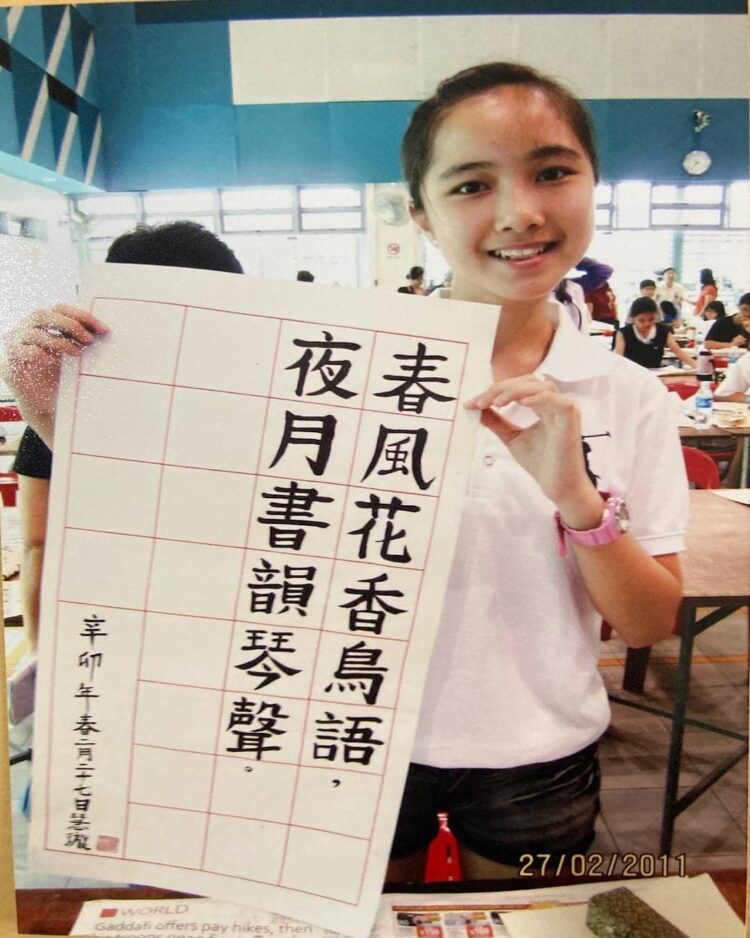 春風花香鳥語，
夜月書韻琴聲。
辛卯年春二月二十七日慧璇
27/02/2011
WORLD
Gaddafi offers pay hikes, then